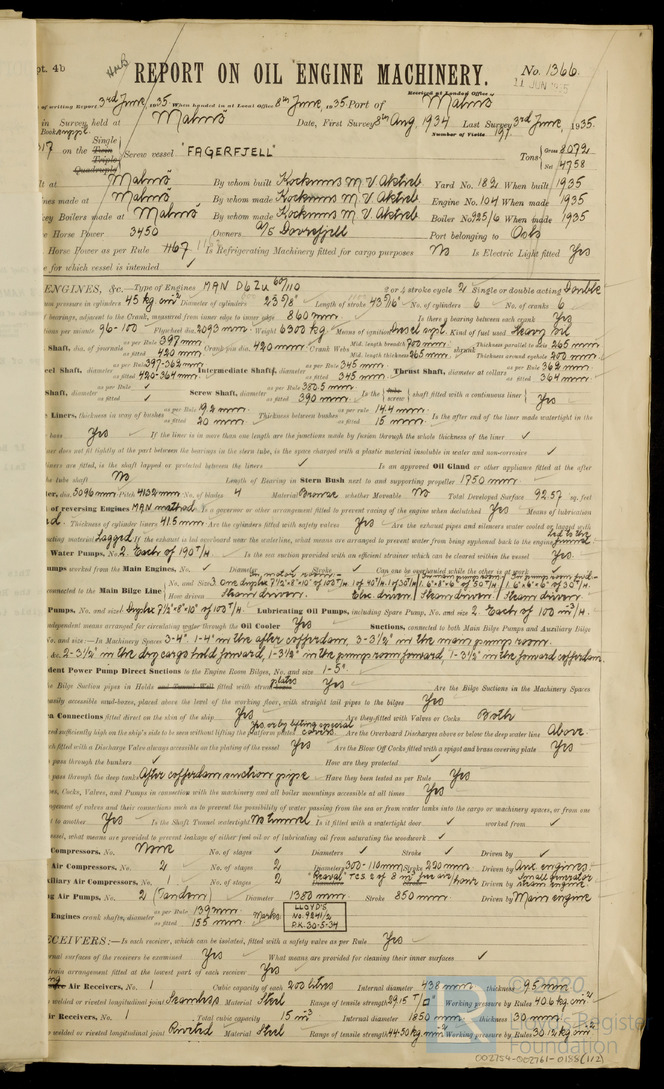 pt. 4b
REPORT ON OIL ENGINE MACHINERY.
No. 1366
11 JUN 1935
Received at London Office
of writing Report 3rd June, 1935 When handed in at Local Office 8th June, 1935 Port of Malmö
in Survey held at Malmö Date, First Survey 8th Aug, 1934 Last Survey 3rd June, 1935
Number of Visits 197
on the Single Twin Triple Quadruple Screw vessel "FAGERFJELL" Tons Gross 8072 Net 4758
lt at Malmö By whom built Kockums M V Aktieb Yard No. 182 When built 1935
nes made at Malmö By whom made Kockums M V Aktieb Engine No. 104 When made 1935
ey Boilers made at Malmö By whom made Kockums M V Aktieb Boiler No. 925/6 When made 1935
Horse Power 3450 Owners A/S Dovrefjell Port belonging to Oslo
Horse Power as per Rule 1167 Is Refrigerating Machinery fitted for cargo purposes No Is Electric Light fitted Yes
e for which vessel is intended
ENGINES, &c.—Type of Engines MAN D6Zu 60/110 2 or 4 stroke cycle 2 Single or double acting Double
um pressure in cylinders 45 kg cm² Diameter of cylinders 23 5/8" Length of stroke 43 5/16" No. of cylinders 6 No. of cranks 6
bearings, adjacent to the Crank, measured from inner edge to inner edge 860 mm Is there a bearing between each crank Yes
ons per minute 96-100 Flywheel dia. 2093 mm Weight 6300 kg Means of ignition Diesel Kind of fuel used Heavy oil
Shaft, dia. of journals as per Rule 397 mm as fitted 420 mm Crank pin dia. 420 mm Crank Webs Mid. length breadth 700 mm Mid. length thickness 265 mm shrunk Thickness parallel to axis 265 mm Thickness around eyehole 200 mm
eel Shaft, diameter as per Rule 397-362 mm as fitted 420-364 mm Intermediate Shafts, diameter as per Rule 345 mm as fitted 345 mm Thrust Shaft, diameter at collars as per Rule 362 mm as fitted 364 mm
Shaft, diameter as per Rule as fitted Screw Shaft, diameter as per Rule 380.5 mm as fitted 390 mm Is the tube screw shaft fitted with a continuous liner Yes
Liners, thickness in way of bushes as per Rule 19.2 mm as fitted 20 mm Thickness between bushes as per rule 14.4 mm as fitted 15 mm Is the after end of the liner made watertight in the
boss Yes If the liner is in more than one length are the junctions made by fusion through the whole thickness of the liner
er does not fit tightly at the part between the bearings in the stern tube, is the space charged with a plastic material insoluble in water and non-corrosive
liners are fitted, is the shaft lapped or protected between the liners Is an approved Oil Gland or other appliance fitted at the after
he tube shaft No Length of Bearing in Stern Bush next to and supporting propeller 1750 mm
ler, dia. 5096 mm Pitch 4132 mm No. of blades 4 Material Bronze whether Moveable No Total Developed Surface 92.57 sq. feet
of reversing Engines MAN method Is a governor or other arrangement fitted to prevent racing of the engine when declutched Yes Means of lubrication
d. Thickness of cylinder liners 41.5 mm Are the cylinders fitted with safety valves Yes Are the exhaust pipes and silencers water cooled or lagged with
ucting material Lagged If the exhaust is led overboard near the waterline, what means are arranged to prevent water from being syphoned back to the engine Led to the funnel
Water Pumps, No. 2. Each of 190 T/H. Is the sea suction provided with an efficient strainer which can be cleared within the vessel Yes
umps worked from the Main Engines, No. Diameter Stroke Can one be overhauled while the other is at work
connected to the Main Bilge Line No. and Size In motor room:— One duplex 7½"×8"×10" of 100 T/H. 1 of 40 T/H. 1 of 30 T/H In main pump room 6"×8"×6" of 30 T/H In pump room for'd— 1.6"×6"×6" of 30 T/H.
How driven Steam driven. Elec. driven Steam driven Steam driven
Pumps, No. and size 1 duplex 7½"×8"×10" of 100 T/H Lubricating Oil Pumps, including Spare Pump, No. and size 2. Each of 100 m³/H.
ndependent means arranged for circulating water through the Oil Cooler Yes Suctions, connected to both Main Bilge Pumps and Auxiliary Bilge
No. and size:—In Machinery Spaces 3-4" 1-4" in the after cofferdam, 3-3½" in the main pump room.
&c. 2-3½" in the dry cargo hold forward, 1-3½" in the pump room forward, 1-3½" in the forward cofferdam.
dent Power Pump Direct Suctions to the Engine Room Bilges, No. and size 1-5".
he Bilge Suction pipes in Holds and Tunnel Well fitted with strum plates Yes Are the Bilge Suctions in the Machinery Spaces
easily accessible mud-boxes, placed above the level of the working floor, with straight tail pipes to the bilges Yes
ea Connections fitted direct on the skin of the ship Yes Are they fitted with Valves or Cocks Both
ed sufficiently high on the ship's side to be seen without lifting the platform plates Yes, or by lifting special covers. Are the Overboard Discharges above or below the deep water line Above
h fitted with a Discharge Valve always accessible on the plating of the vessel Yes Are the Blow Off Cocks fitted with a spigot and brass covering plate Yes
pass through the bunkers How are they protected
pass through the deep tanks After cofferdam suction pipe Have they been tested as per Rule Yes
es, Cocks, Valves, and Pumps in connection with the machinery and all boiler mountings accessible at all times Yes
ngement of valves and their connections such as to prevent the possibility of water passing from the sea or from water tanks into the cargo or machinery spaces, or from one
t to another Yes Is the Shaft Tunnel watertight No tunnel Is it fitted with a watertight door worked from
essel, what means are provided to prevent leakage of either fuel oil or of lubricating oil from saturating the woodwork
Compressors, No. None No. of stages Diameters Stroke Driven by
Air Compressors, No. 2 No. of stages 2 Diameters 300-110 mm Stroke 220 mm Driven by Aux engines.
iliary Air Compressors, No. 1 No. of stages 2 "Reavell" TCS. 2 of 8 m³ free air/hour Driven by Small generator steam engine
ng Air Pumps, No. 2 (Tandem) Diameter 1380 mm Stroke 850 mm Driven by Main engine
Engines crank shafts, diameter as per Rule 139 mm as fitted 155 mm Marks LLOYD'S No. 9241/2 P.K. 30-5-34
ECEIVERS:—Is each receiver, which can be isolated, fitted with a safety valve as per Rule Yes
rnal surfaces of the receivers be examined Yes What means are provided for cleaning their inner surfaces
drain arrangement fitted at the lowest part of each receiver Yes
Air Receivers, No. 1 Cubic capacity of each 200 litres Internal diameter 438 mm thickness 9.5 mm
welded or riveted longitudinal joint Seamless Material Steel Range of tensile strength 29.15 T/□" Working pressure by Rules 40.6 kg cm²
ir Receivers, No. 1 Total cubic capacity 15 m³ Internal diameter 1850 mm thickness 30 mm
welded or riveted longitudinal joint Riveted Material Steel Range of tensile strength 44-50 kg mm² Working pressure by Rules 30.12 kg cm²
© 2020
Lloyd's Register
Foundation
002754-002761-0188 (1/2)